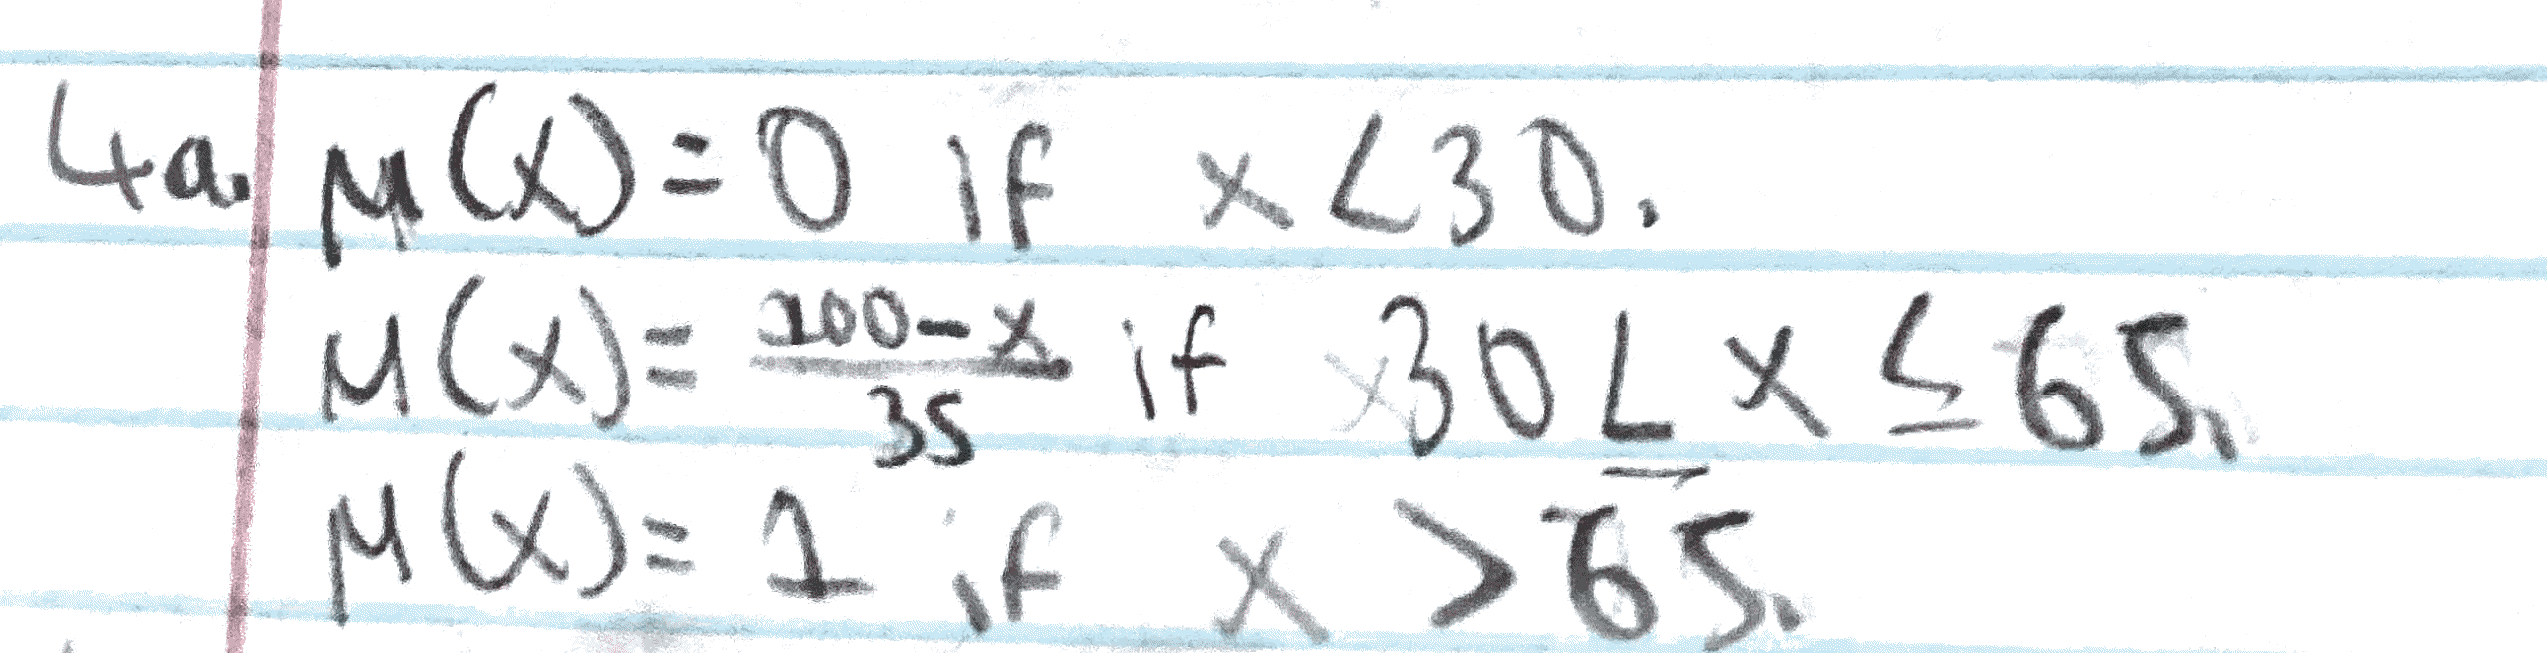 4a. μ(x)=0 if x<30.
μ(x)=\frac{100-x}{35} if 30≤x≤65.
μ(x)=1 if x>65.